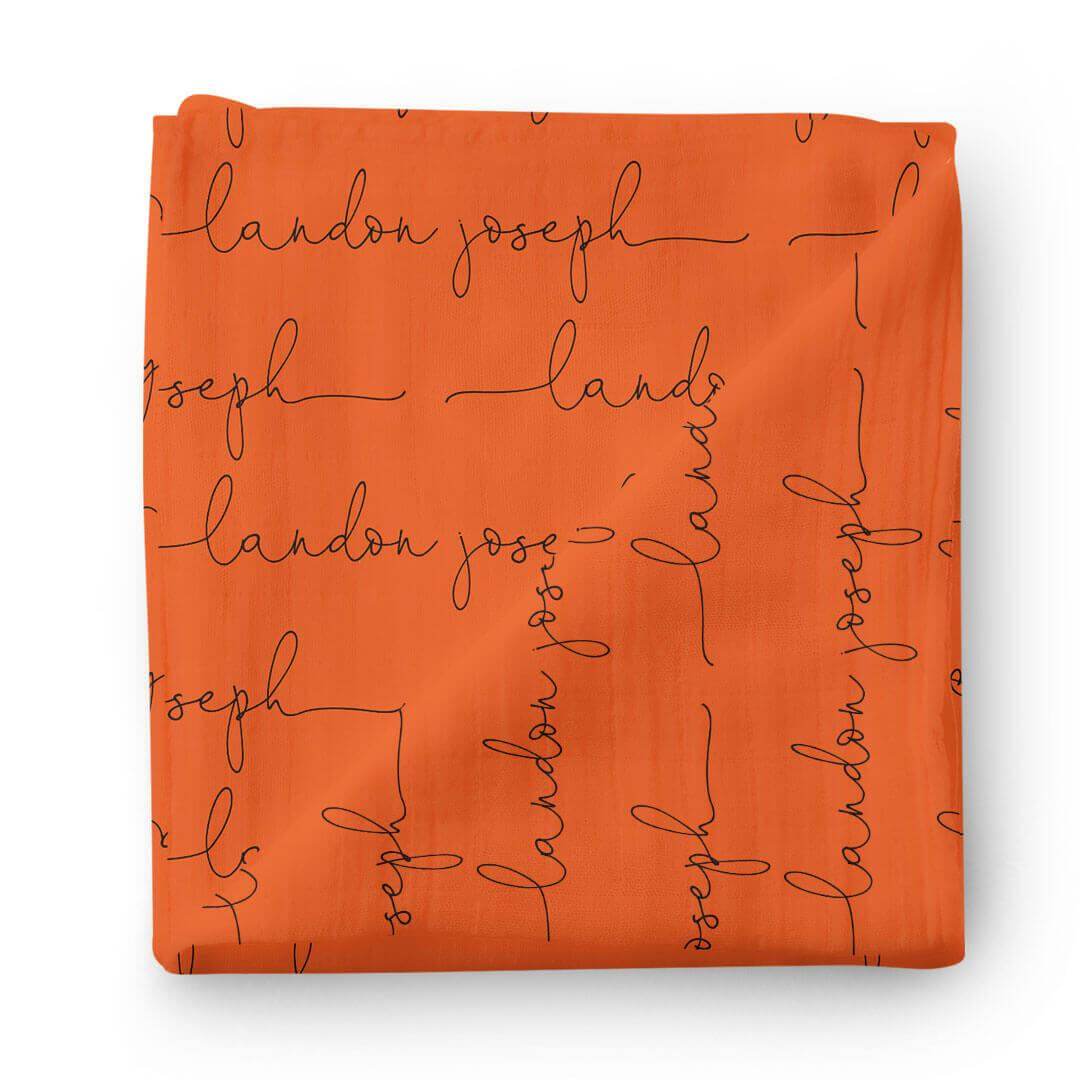 landon joseph
joseph land
landon jose
joseph
land
landon jos
landon joseph
seph
oseph